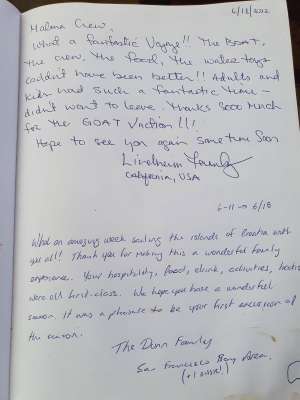 6/18/2022
Malena Crew,
What a fantastic Voyage!! The BOAT,
the crew, the food, the water toys
couldn't have been better!! Adults and
kids had such a fantastic time -
didn't want to leave. Thanks Sooo Much
for the GOAT Vaction!!!
Hope to see you again some time Soon
Family
California, USA
6-11 → 6/18
What an amazing week sailing the islands of Croatia with
you all!! Thank you for making this a wonderful family
experience. Your hospitality, food, drink, activities,
were all first-class. We hope you have a wonderful
season. It was a pleasure to be your first excursion of
the season.
The Dunn Family
San Francisco Bay Area,